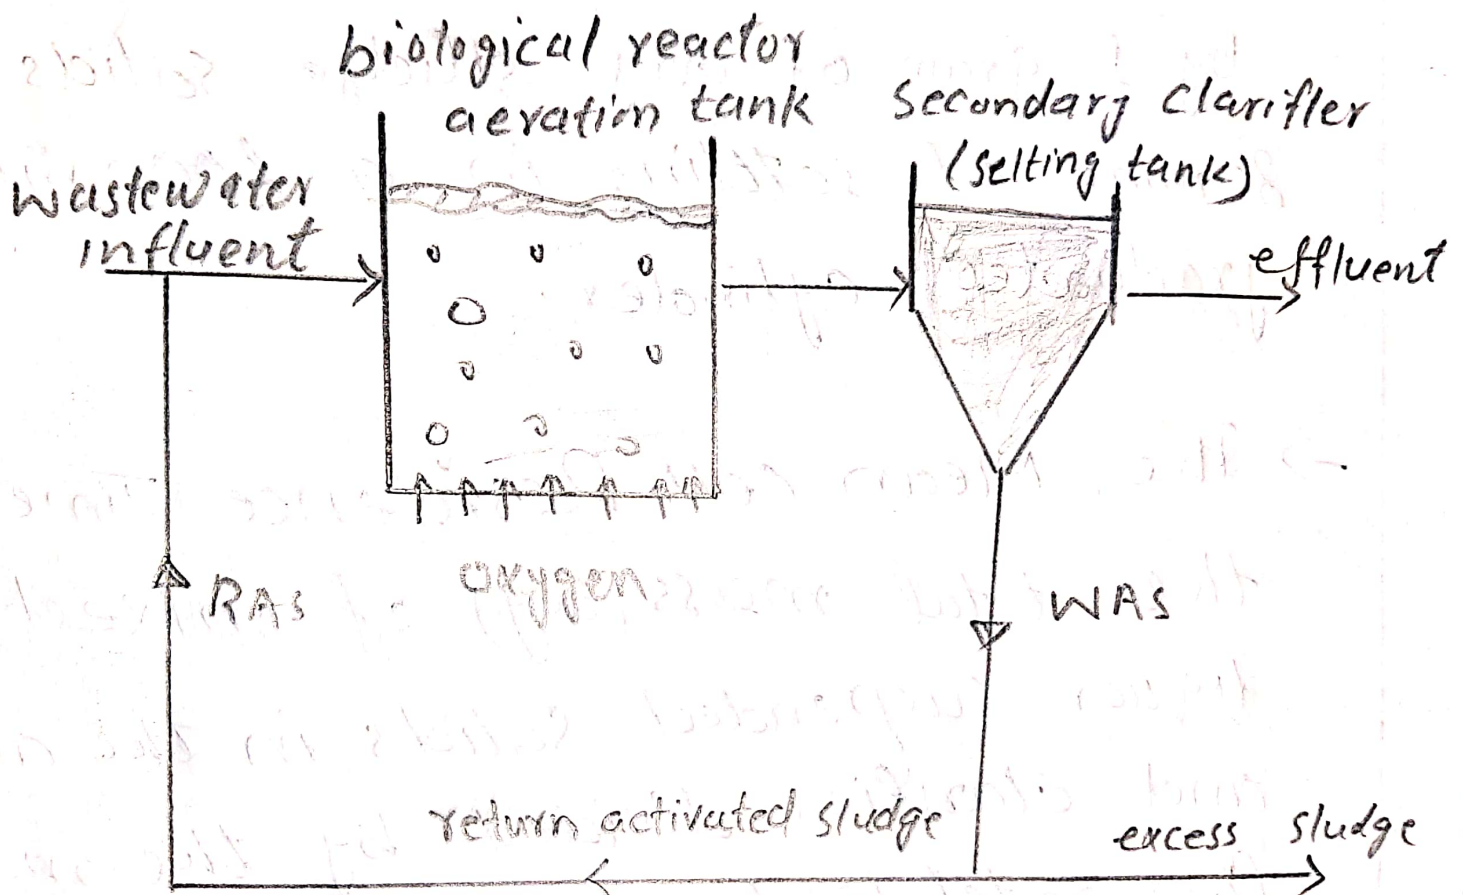 biological reactor
aeration tank
secondary clarifler
(selting tank)
wastewater
influent
effluent
oxygen
RAS
WAS
return activated sludge
excess sludge